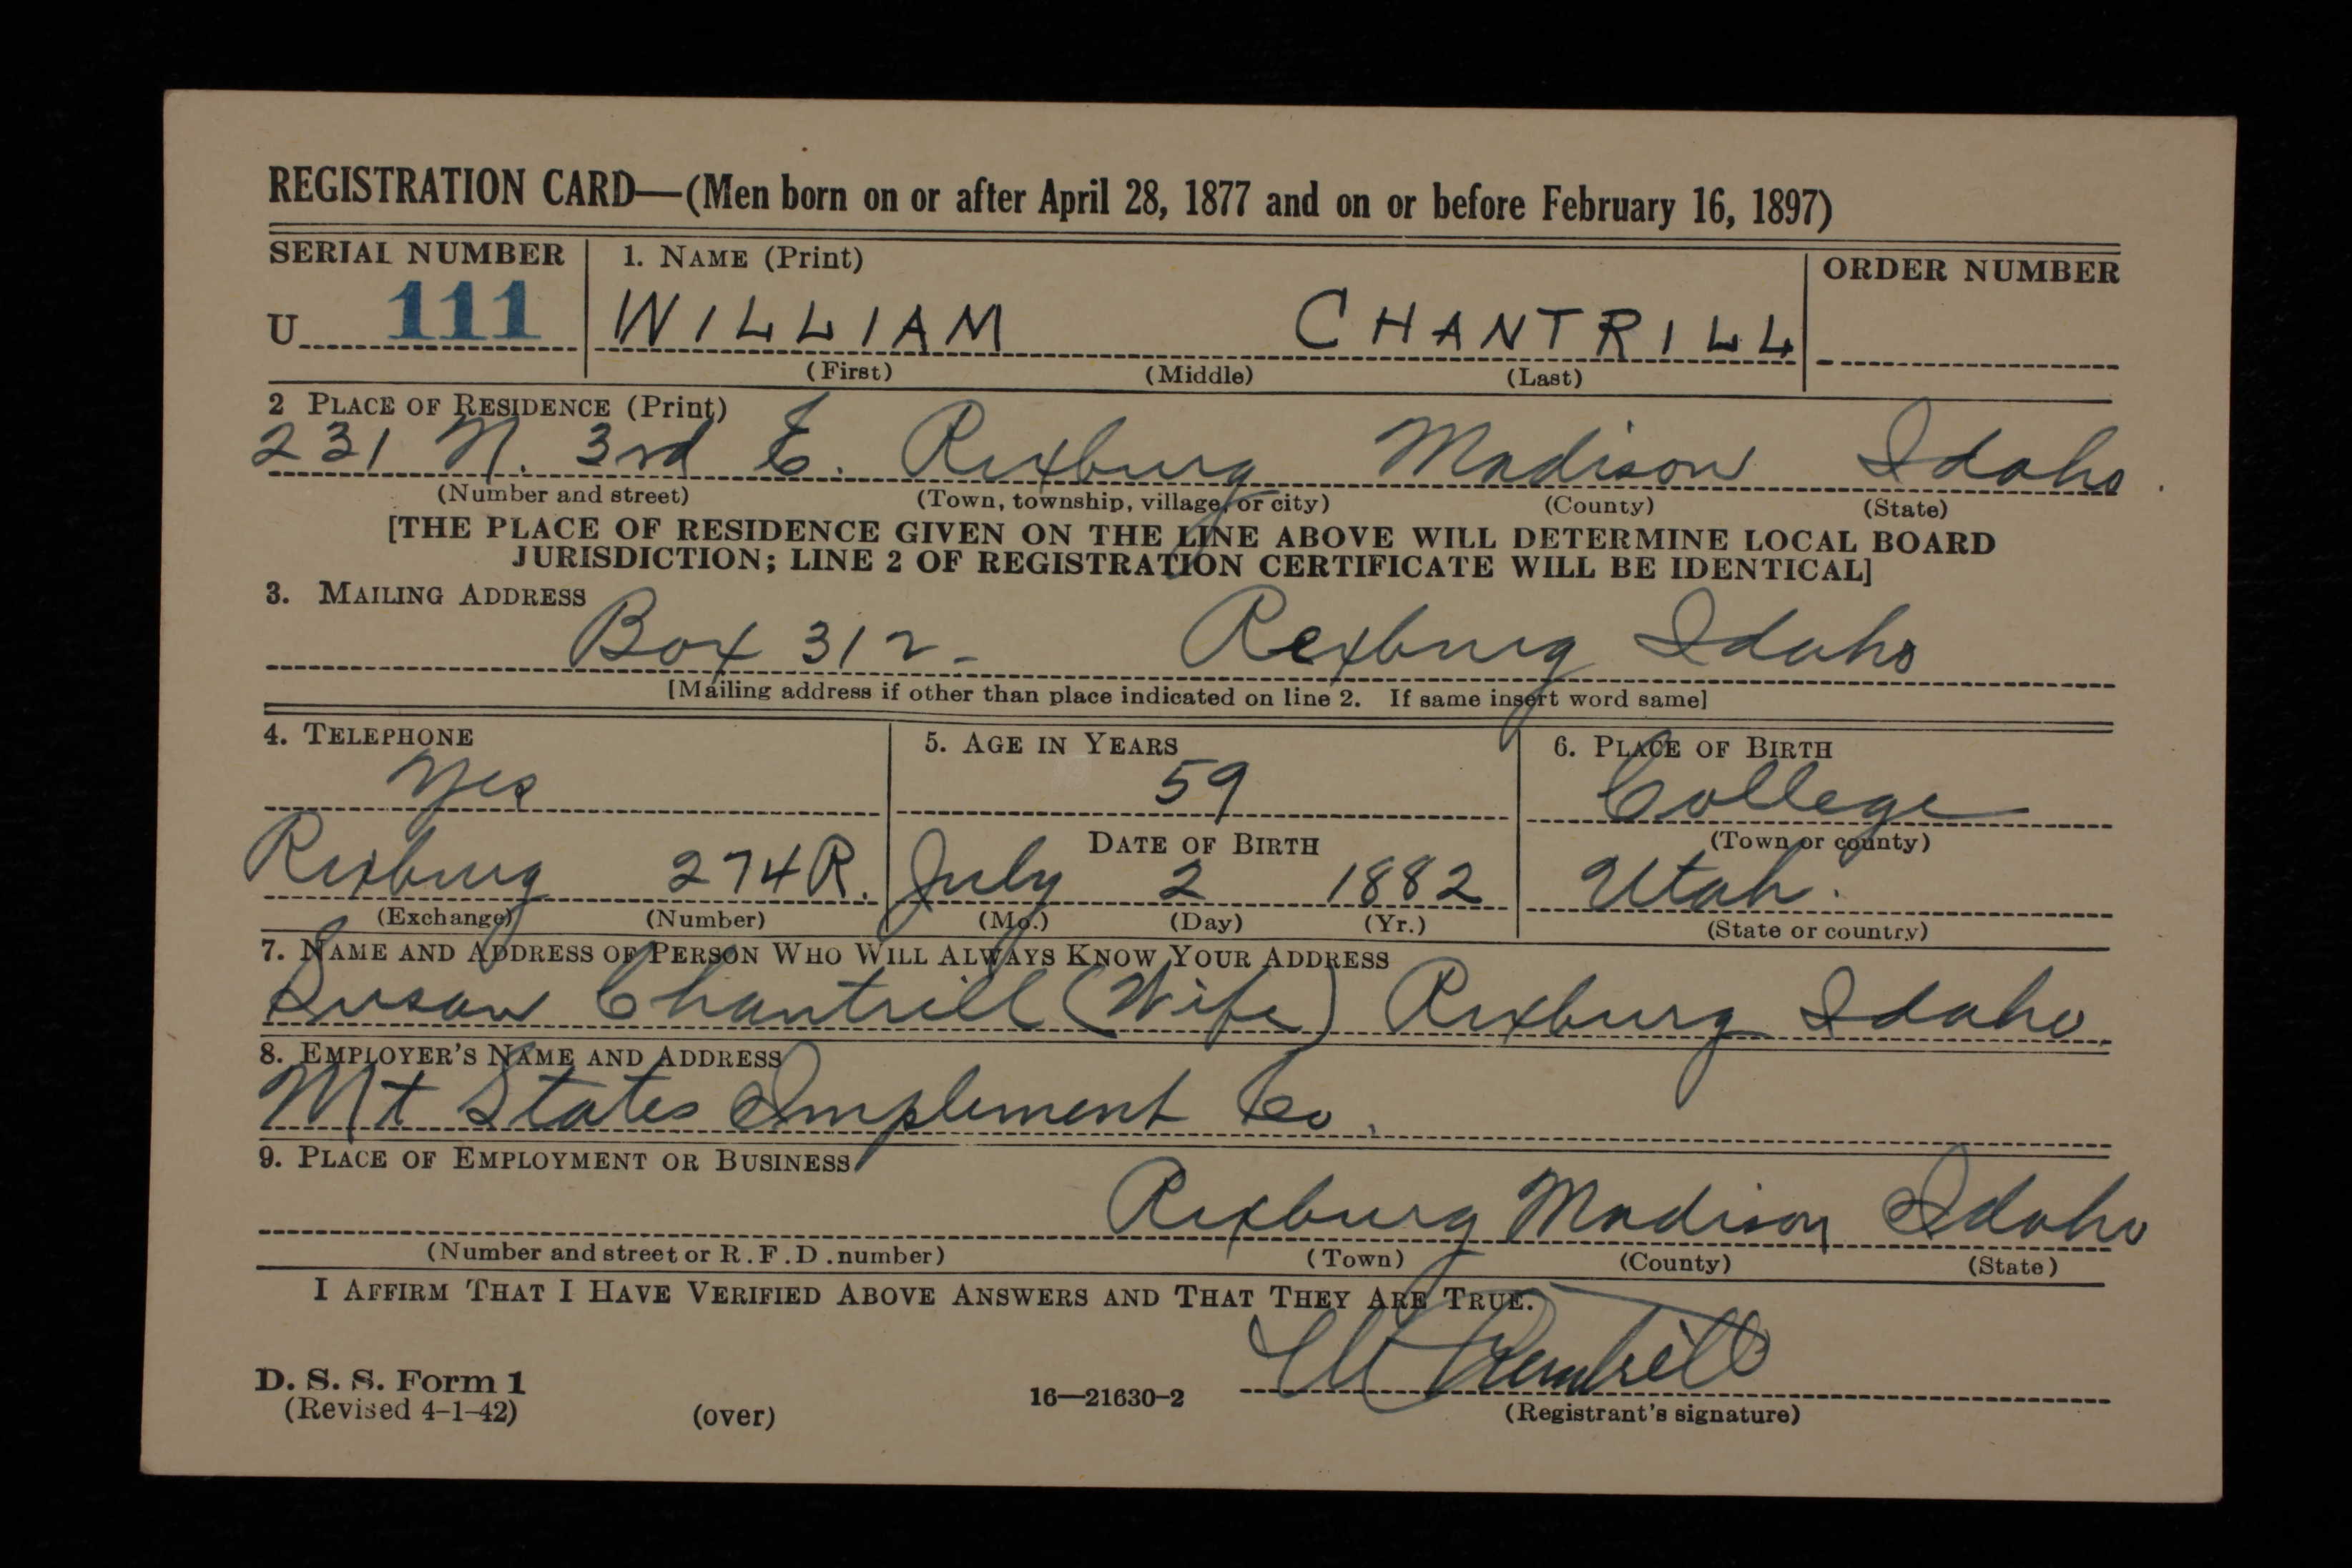 REGISTRATION CARD—(Men born on or after April 28, 1877 and on or before February 16, 1897)
SERIAL NUMBER 1. NAME (Print) ORDER NUMBER
U 111 WILLIAM CHANTRILL
(First) (Middle) (Last)
2 PLACE OF RESIDENCE (Print)
231 N. 3rd E. Rexburg Madison Idaho.
(Number and street) (Town, township, village, or city) (County) (State)
[THE PLACE OF RESIDENCE GIVEN ON THE LINE ABOVE WILL DETERMINE LOCAL BOARD
JURISDICTION; LINE 2 OF REGISTRATION CERTIFICATE WILL BE IDENTICAL]
3. MAILING ADDRESS
Box 312 - Rexburg Idaho
[Mailing address if other than place indicated on line 2. If same insert word same]
4. TELEPHONE 5. AGE IN YEARS 6. PLACE OF BIRTH
Yes 59 College
DATE OF BIRTH (Town or county)
Rexburg 274R. July 2 1882 Utah.
(Exchange) (Number) (Mo.) (Day) (Yr.) (State or country)
7. NAME AND ADDRESS OF PERSON WHO WILL ALWAYS KNOW YOUR ADDRESS
Susan Chantrill (Wife) Rexburg Idaho.
8. EMPLOYER'S NAME AND ADDRESS
Mt States Implement Co.
9. PLACE OF EMPLOYMENT OR BUSINESS
Rexburg Madison Idaho
(Number and street or R.F.D. number) (Town) (County) (State)
I AFFIRM THAT I HAVE VERIFIED ABOVE ANSWERS AND THAT THEY ARE TRUE.
Wm Chantrill
D. S. S. Form 1
(Revised 4-1-42) (over) 16—21630-2 (Registrant's signature)